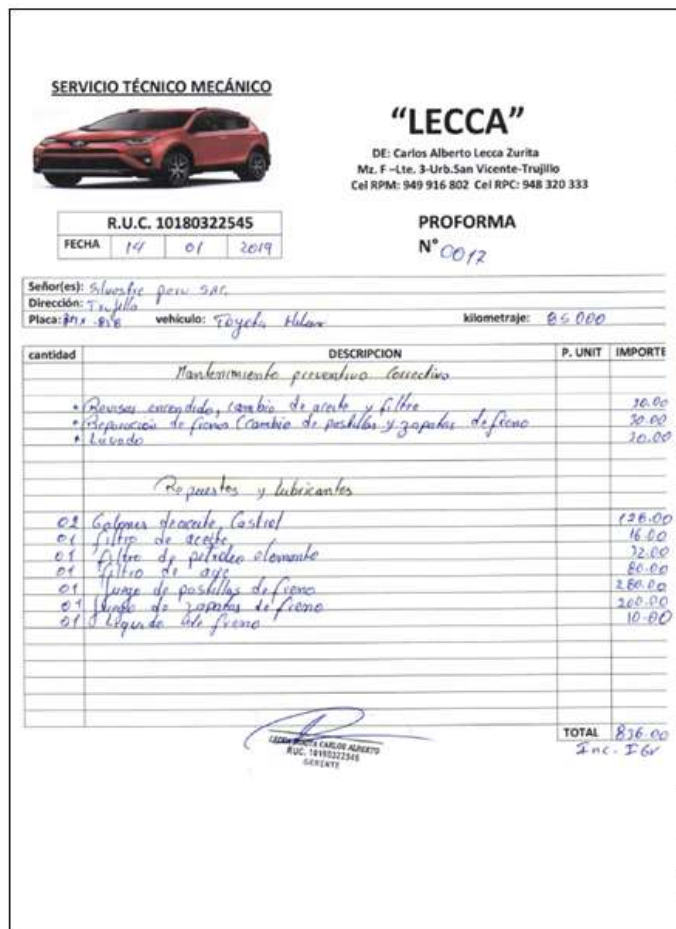 SERVICIO TÉCNICO MECÁNICO
“LECCA”
DE: Carlos Alberto Lecca Zurita
Mz. F –Lte. 3-Urb.San Vicente-Trujillo
Cel RPM: 949 916 802 Cel RPC: 948 320 333
R.U.C. 10180322545
FECHA 14 01 2019
PROFORMA
N° 0017
Señor(es): Silvestre peru SAC
Dirección: Trujillo
Placa: vehículo: Toyota Hilux kilometraje: 85000
cantidad DESCRIPCION P. UNIT IMPORTE
Mantenimiento preventivo Correctivo
• Revisar encendido, cambio de aceite y filtro 30.00
• Reparación de frenos (cambio de pastillas y zapatas de freno 30.00
• Lavado 20.00
Repuestos y lubricantes
02 Galones de aceite, Castrol 128.00
01 filtro de aceite 16.00
01 filtro de petroleo elemento 32.00
01 filtro de aire 80.00
01 Juego de pastillas de freno 280.00
01 Juego de zapatas de freno 200.00
01 Liquido de freno 10.00
TOTAL 836.00
Inc. IGV
LECCA ZURITA CARLOS ALBERTO
RUC. 10180322545
GERENTE